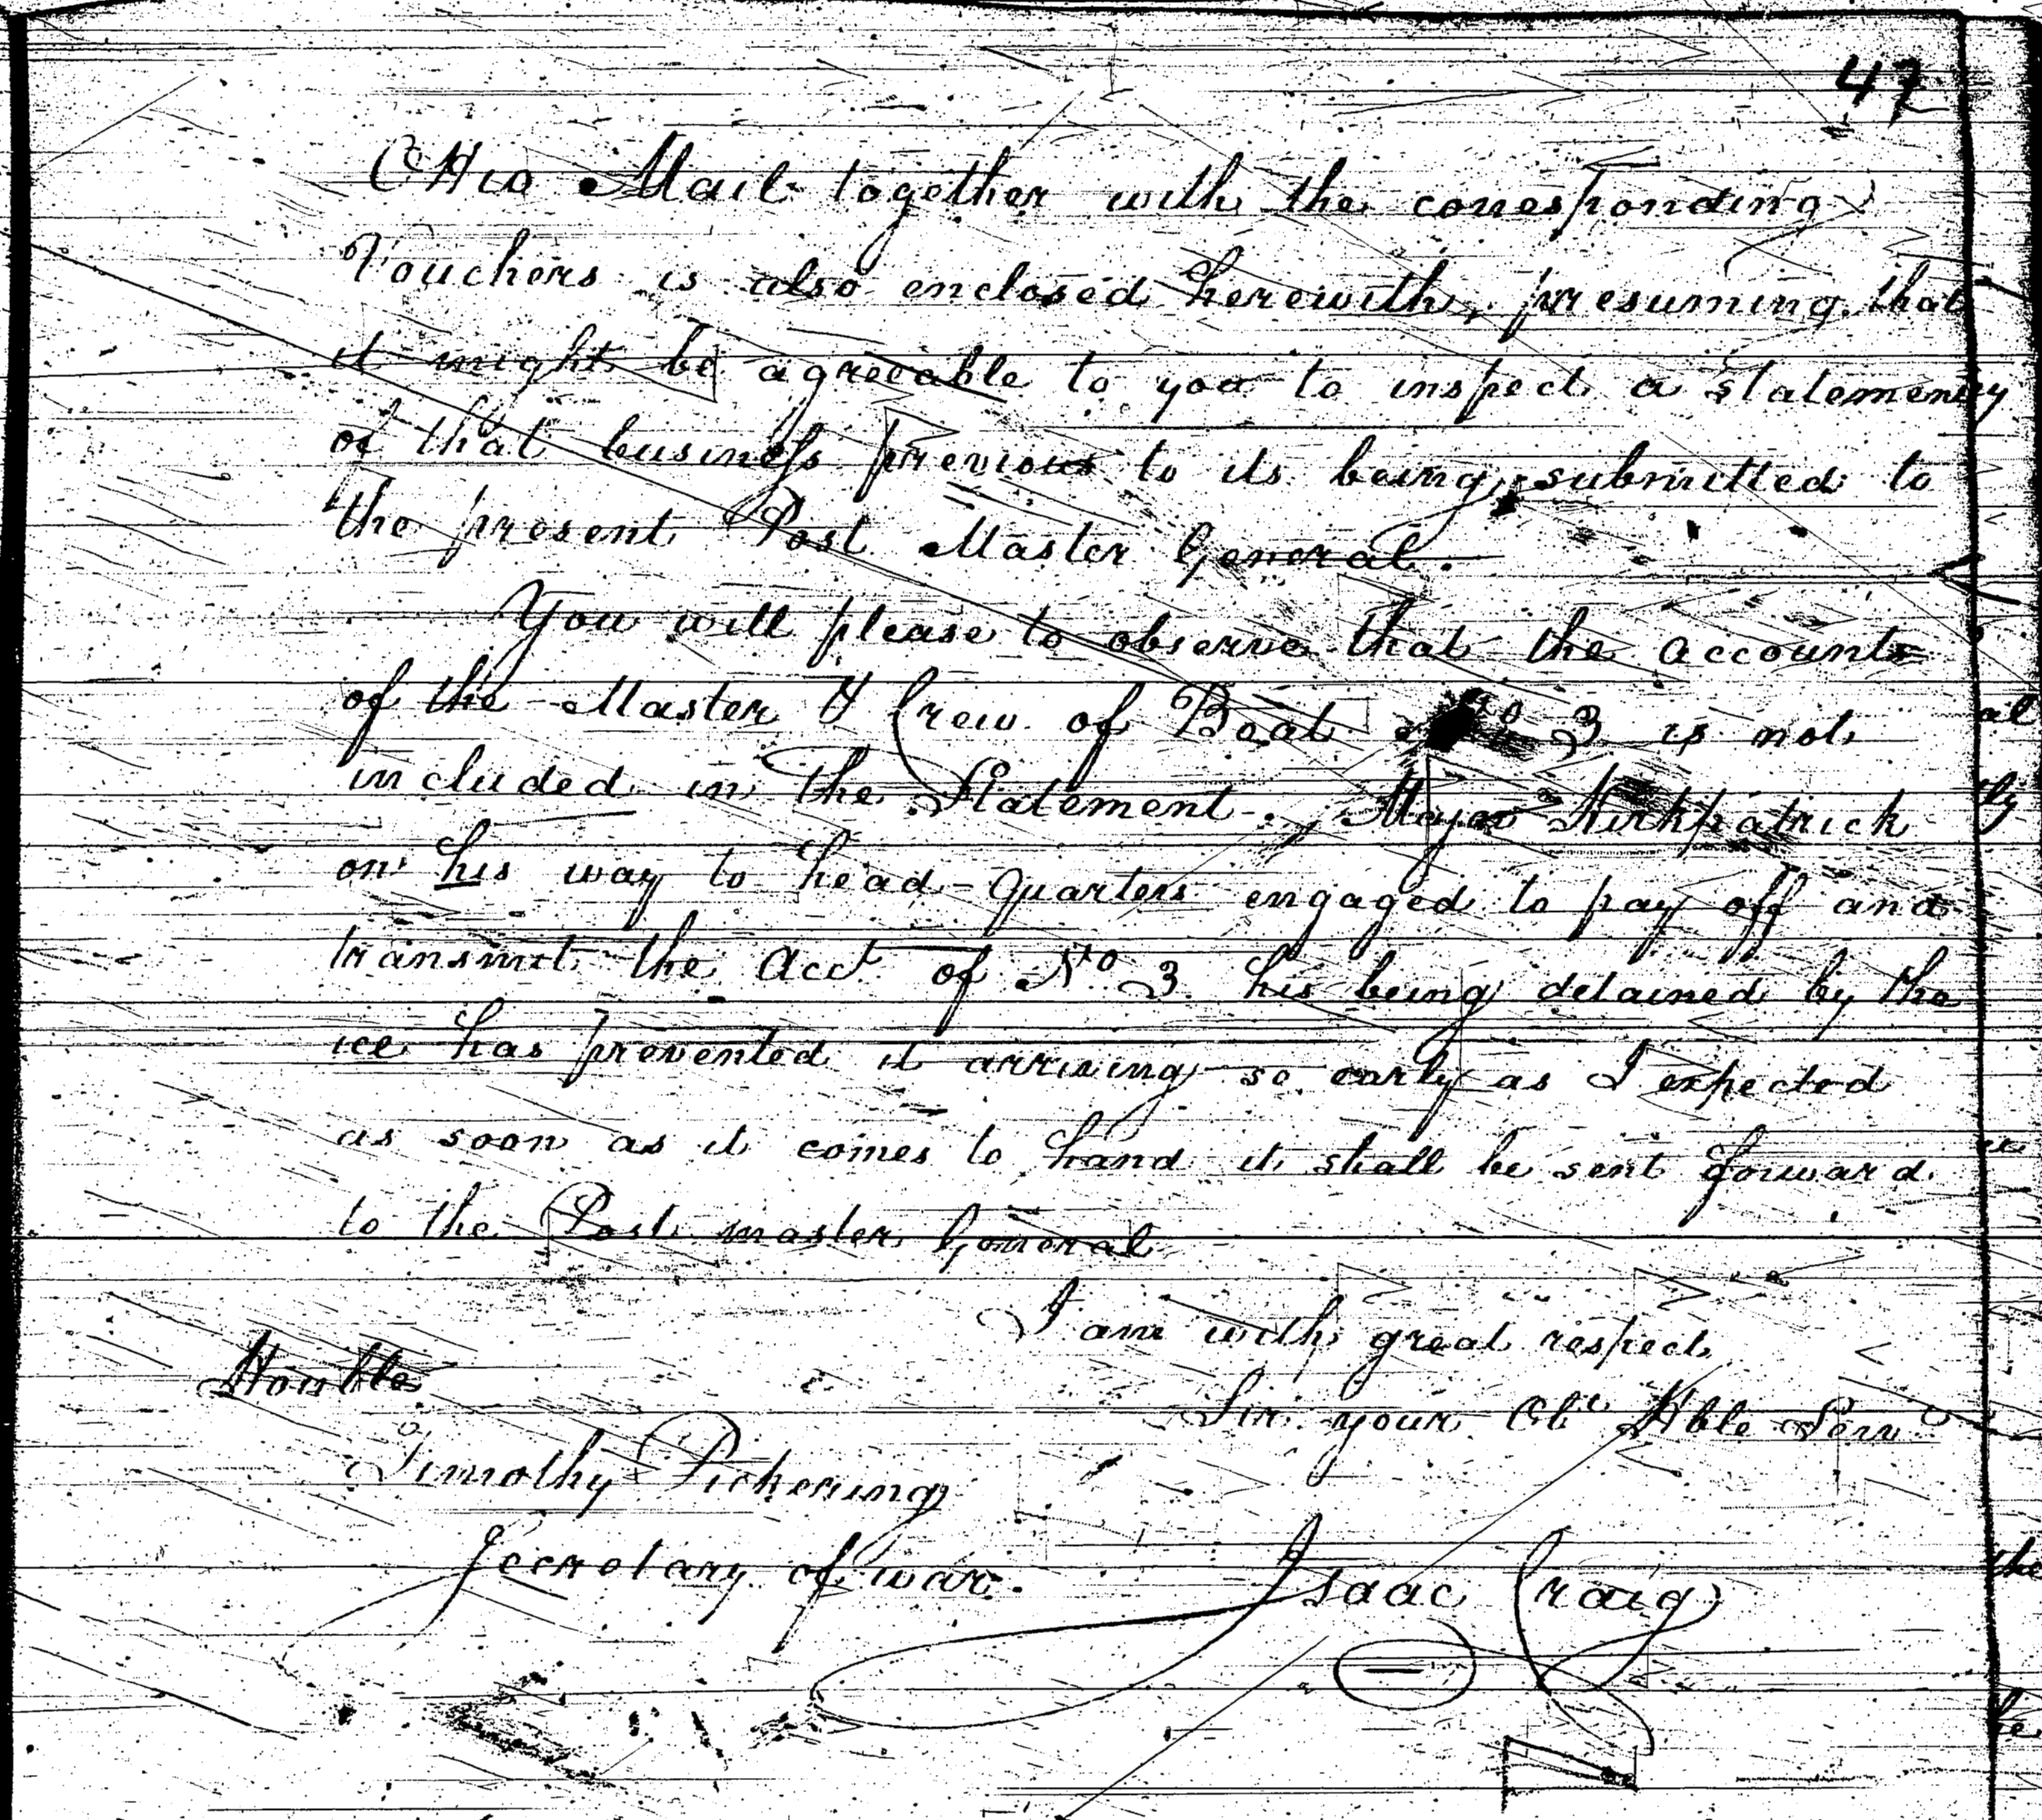 47
Ohio Mail together with the corresponding
Vouchers is also enclosed herewith, presuming that
it might be agreeable to you to inspect a statement
of that business previous to its being submitted to
the present Post Master General.
You will please to observe that the accounts
of the Master & Crew of Boat No 3 is not
included in the Statement. Major Kirkpatrick
on his way to head-quarters engaged to pay off and
transmit the Acct of No 3 his being detained by the
ice has prevented it arriving so early as I expected
as soon as it comes to hand it shall be sent forward
to the Post master General
I am with great respect
Sir your Obt Hble Servt
Honble
Timothy Pickering
Secretary of war.
Isaac Craig